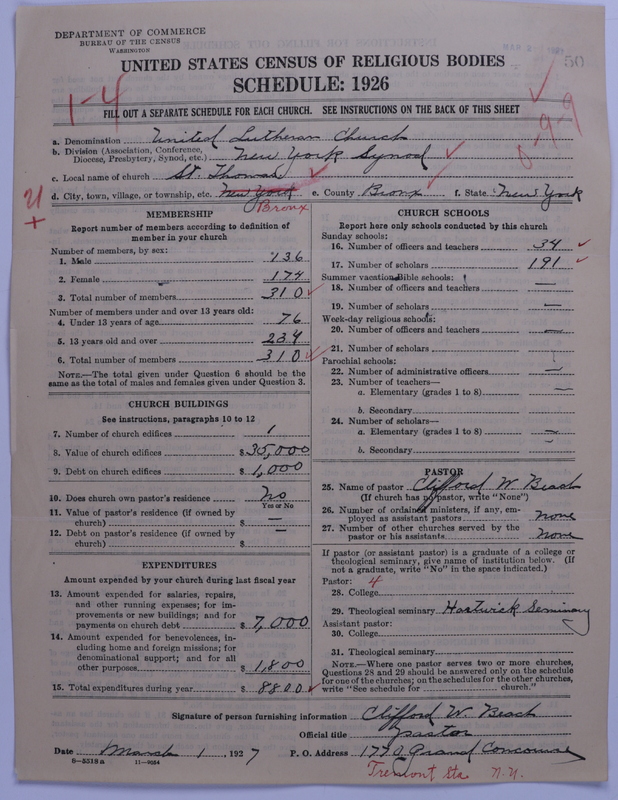 DEPARTMENT OF COMMERCE
BUREAU OF THE CENSUS
WASHINGTON
50
UNITED STATES CENSUS OF RELIGIOUS BODIES
SCHEDULE: 1926
1-4
FILL OUT A SEPARATE SCHEDULE FOR EACH CHURCH. SEE INSTRUCTIONS ON THE BACK OF THIS SHEET
0-9-9
a. Denomination United Lutheran Church
b. Division (Association, Conference,
Diocese, Presbytery, Synod, etc.) New York Synod
c. Local name of church St. Thomas
d. City, town, village, or township, etc. New York e. County Bronx f. State New York
Bronx
MEMBERSHIP
Report number of members according to definition of
member in your church
Number of members, by sex:
1. Male 136
2. Female 174
3. Total number of members 310
Number of members under and over 13 years old:
4. Under 13 years of age 76
5. 13 years old and over 234
6. Total number of members 310
NOTE.—The total given under Question 6 should be
same as the total of males and females given under Question 3.
CHURCH BUILDINGS
See instructions, paragraphs 10 to 12
7. Number of church edifices 1
8. Value of church edifices $35,000
9. Debt on church edifices $1,000
10. Does church own pastor's residence no
Yes or No
11. Value of pastor's residence (if owned by
church) $ —
12. Debt on pastor's residence (if owned by
church) $ —
EXPENDITURES
Amount expended by your church during last fiscal year
13. Amount expended for salaries, repairs,
and other running expenses; for im-
provements or new buildings; and for
payments on church debt $7,000
14. Amount expended for benevolences, in-
cluding home and foreign missions; for
denominational support; and for all
other purposes $1,800
15. Total expenditures during year $8800
CHURCH SCHOOLS
Report here only schools conducted by this church
Sunday schools:
16. Number of officers and teachers 34
17. Number of scholars 191
Summer vacation Bible schools:
18. Number of officers and teachers —
19. Number of scholars —
Week-day religious schools:
20. Number of officers and teachers —
21. Number of scholars
Parochial schools:
22. Number of administrative officers —
23. Number of teachers—
a. Elementary (grades 1 to 8) —
b. Secondary
24. Number of scholars—
a. Elementary (grades 1 to 8) —
b. Secondary —
PASTOR
25. Name of pastor Clifford W. Beach
(If church has no pastor, write "None")
26. Number of ordained ministers, if any, em-
ployed as assistant pastors none
27. Number of other churches served by the
pastor or his assistants none
If pastor (or assistant pastor) is a graduate of a college or
theological seminary, give name of institution below. (If
not a graduate, write "No" in the space indicated.)
Pastor: 4
28. College
29. Theological seminary Hartwick Seminary
Assistant pastor:
30. College
31. Theological seminary
NOTE.—Where one pastor serves two or more churches,
Questions 28 and 29 should be answered only on the schedule
for one of the churches; on the schedules for the other churches,
write "See schedule for church."
Signature of person furnishing information Clifford W. Beach
Official title pastor
Date March 1, 1927 P. O. Address 1770 Grand Concourse
8-5518a 11-9054
Tremont Sta N.Y.